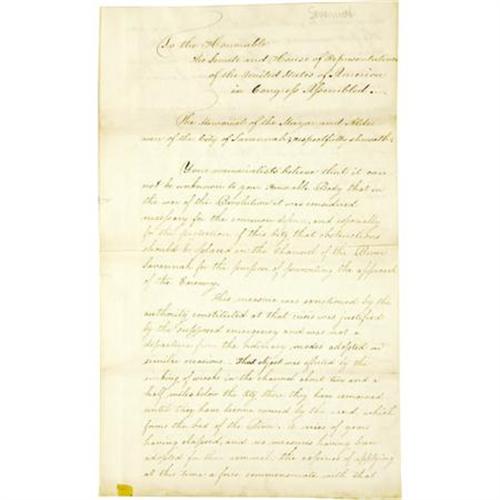 Savannah
To the Honourable
the Senate and House of Representatives
of the United States of America
in Congress Assembled.
The Memorial of the Mayor and Alder
men of the City of Savannah, respectfully sheweth
Your memorialists believe that it can
not be unknown to your Honorable Body that in
the war of the Revolution it was considered
necessary for the common defence, and especially
for the protection of this City that obstructions
should be placed in the Channel of the River
Savannah for the purpose of preventing the approach
of the Enemy.
This measure was sanctioned by the
authority constituted at that crisis was justified
by the supposed emergency and was not a
departure from the ordinary modes adopted on
similar occasions. This object was effected by the
sinking of wrecks in the channel about two and a
half miles below the City there they have remained
until they have become covered by the sand which
forms the bed of the River. A series of years
having elapsed, and no measures having been
adopted for their removal, the expense of applying
at this time a force commensurate with that